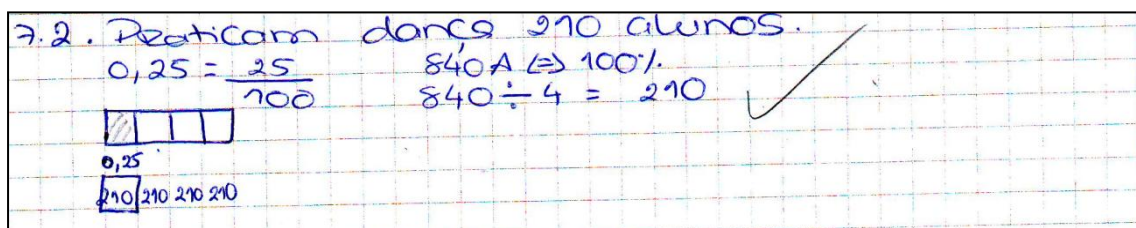 7.2. Praticam dança 210 alunos.
0,25 = 25/100    840A ⇔ 100%.
840 ÷ 4 = 210
0,25
210 210 210 210